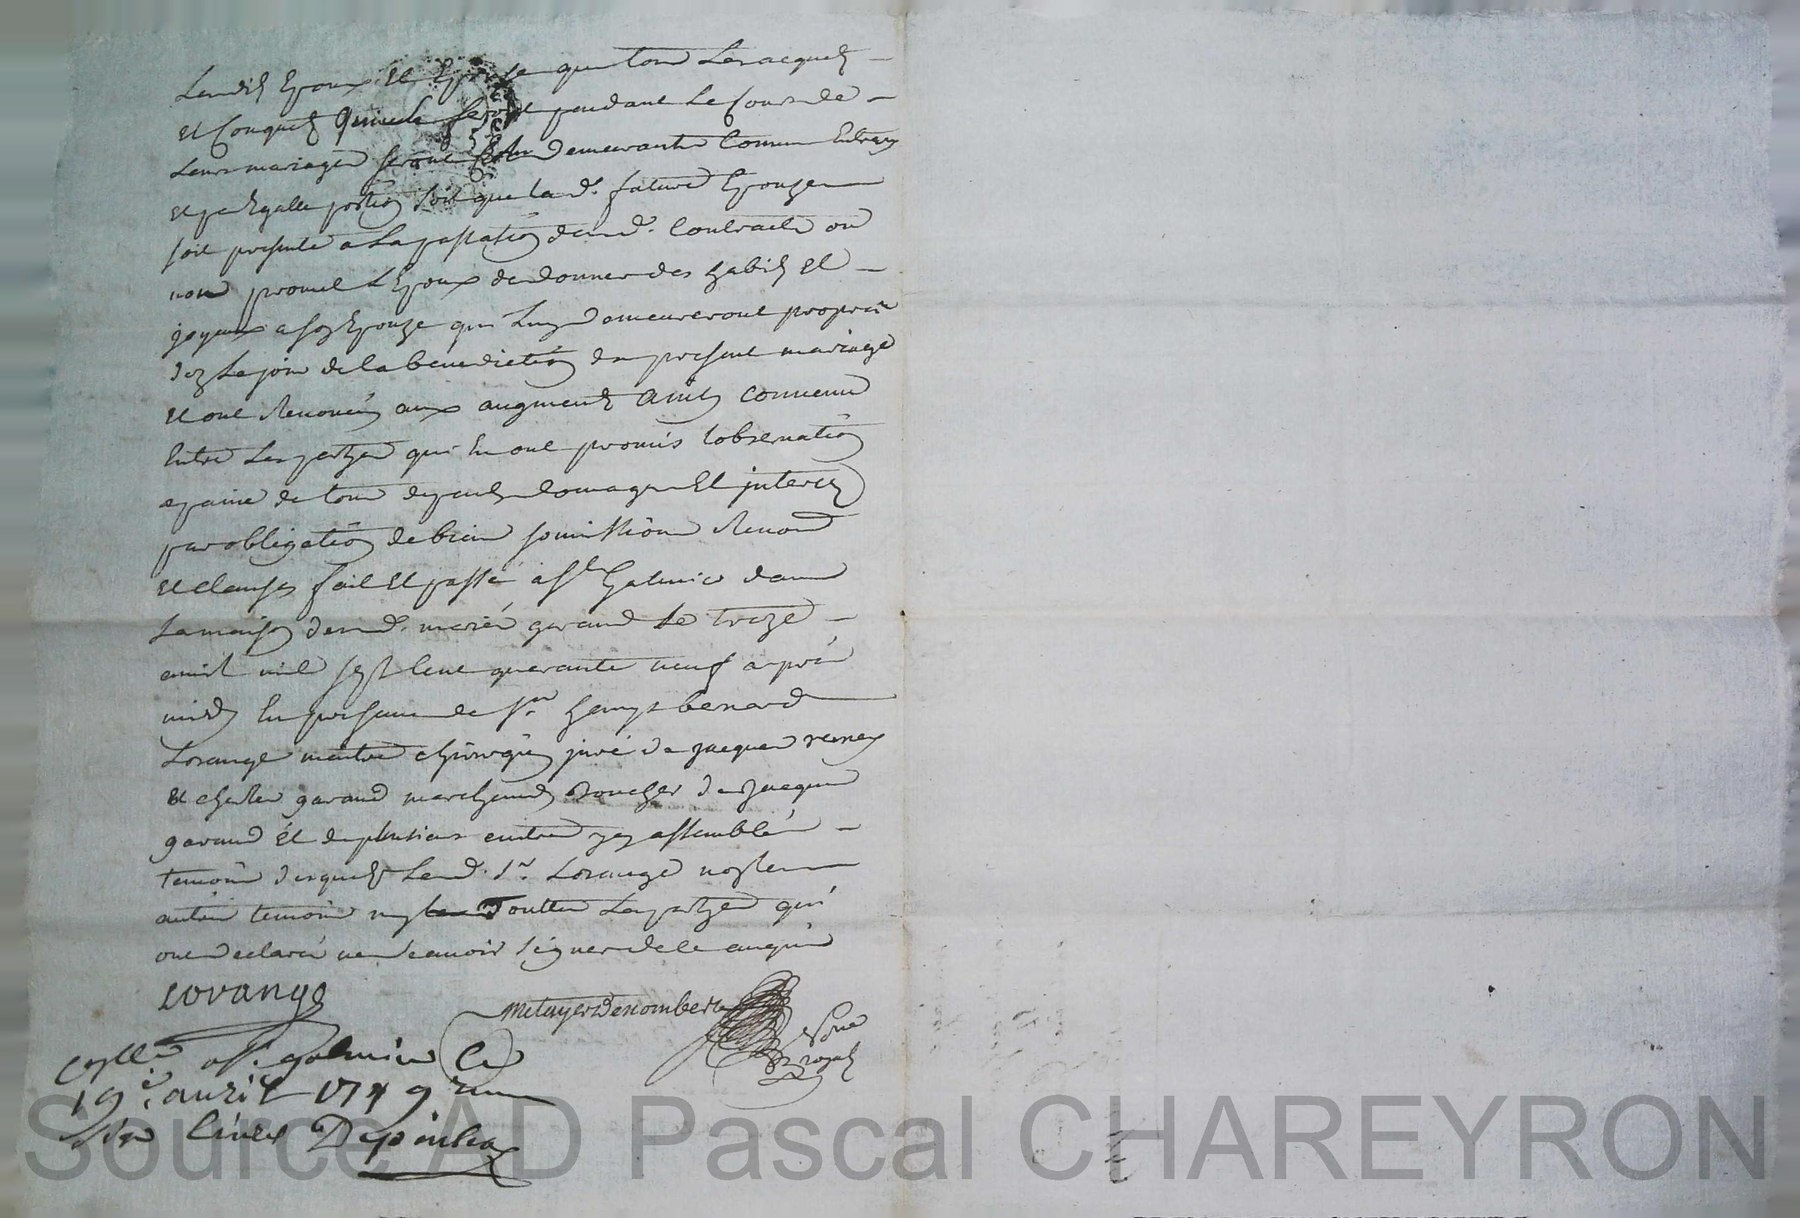 Lesdits Epoux Et Epouse que tous Les acquets
Et Conquets quils feront pendant Le Cours de
Leurs mariage seront demeurants Commun Entreux
Et par Egalle portion soit que la de. future Epouze
soit presente a La passation dud. Contracts ou
non promet L'Epoux de donner des habits Et
joyaux a son Epouze qui Luy demeureront propres
dez Le jour de la benediction du present mariage
Et ont Renoncés aux augments Ainsy Convenu
Entre Les partyes qui En ont promis l'observation
a paine de tous depends domages Et interets
par obligation de biens soumissions Renons
Et clauses fait Et passé a St Galmier dans
La maison dud. marié garand Le treze
avril mil sept Cent quarante neuf apres
midy En presence de Sr. benard
Lorange maitre chirurgien juré de Jacques
Et garand marchand Boucher de Jacques
garand Et de plusieurs autres ycy assemblés
temoins desquels Led. Sr. Lorange
autres temoins ny Touttes Les partyes qui
ont declaré ne sçavoir signer de ce enquis
Lorange
Metayer Denombert
Notaire
Royal
Conllé a St. galmier Ce
19e. avril 1749
six livres Depinhac
Source AD Pascal CHAREYRON